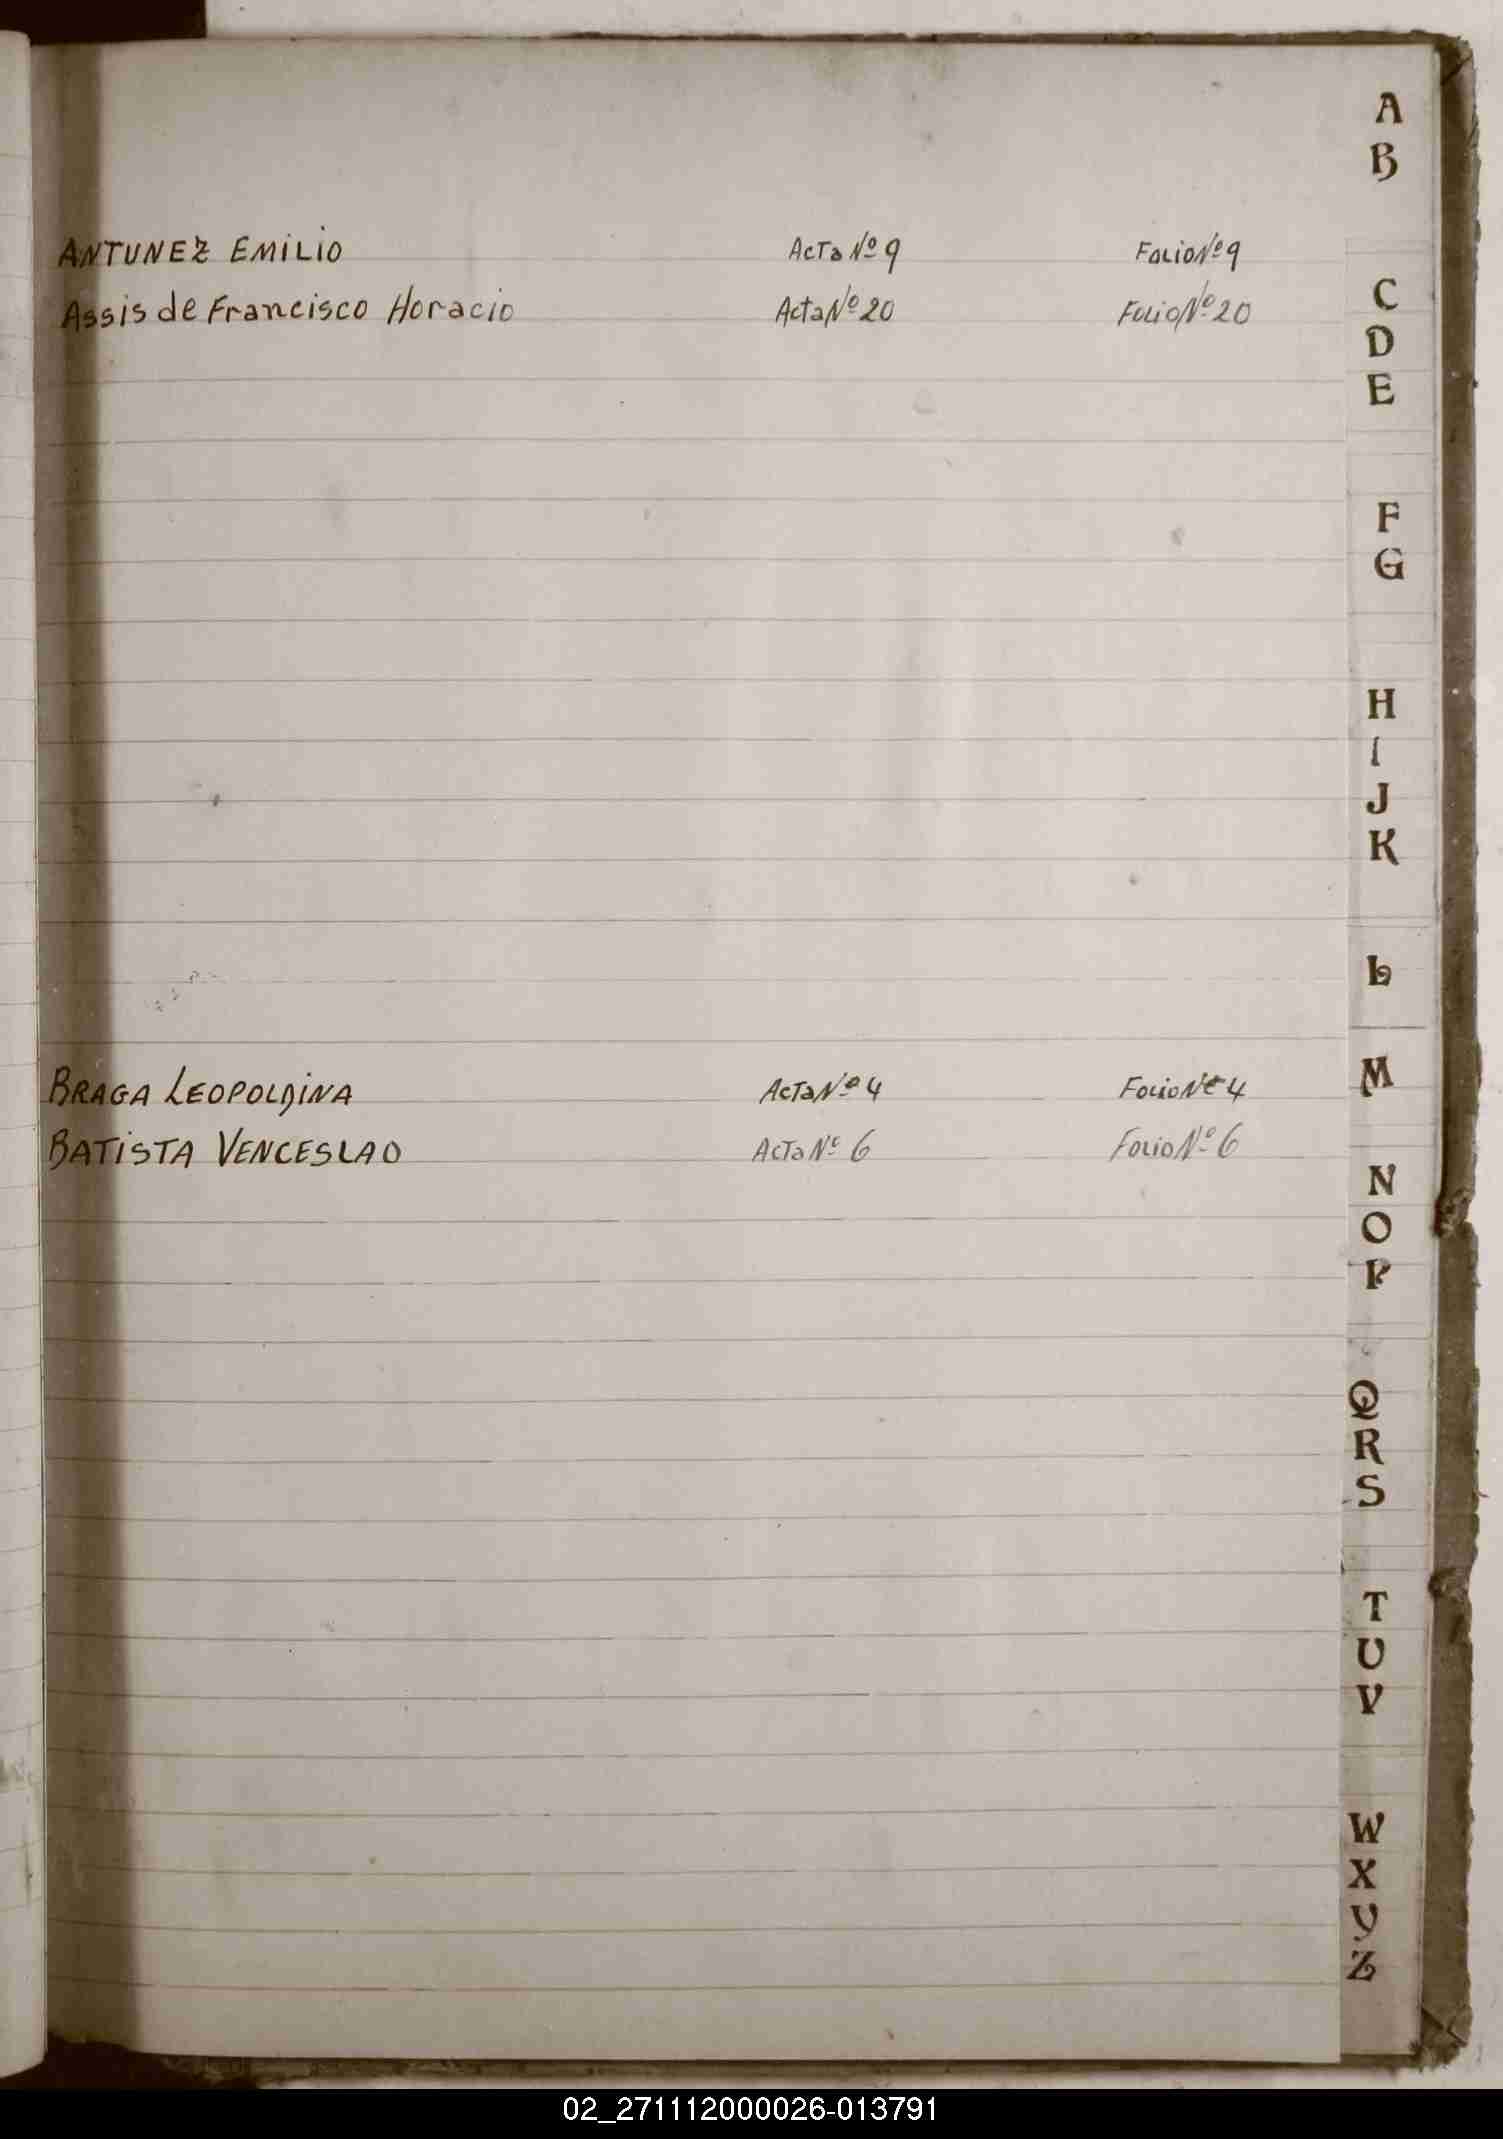 A
B
ANTUNEZ EMILIO Acta Nº 9 Folio Nº 9
Assis de Francisco Horacio Acta Nº 20 Folio Nº 20
C
D
E
F
G
H
I
J
K
L
BRAGA LEOPOLDINA Acta Nº 4 Folio Nº 4
M
BATISTA VENCESLAO Acta Nº 6 Folio Nº 6
N
O
P
Q
R
S
T
U
V
W
X
Y
Z
02_271112000026-013791